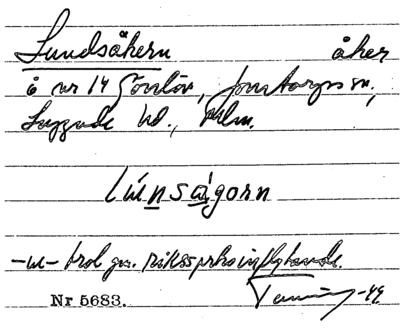 Lundsåkern åker
å nr 14 Görslöv, Jonstorps sn.,
Luggude hd., Mlm.
lúnságorn
-u- trol gm. riksspråksinflytande.
Nr 5683. -49